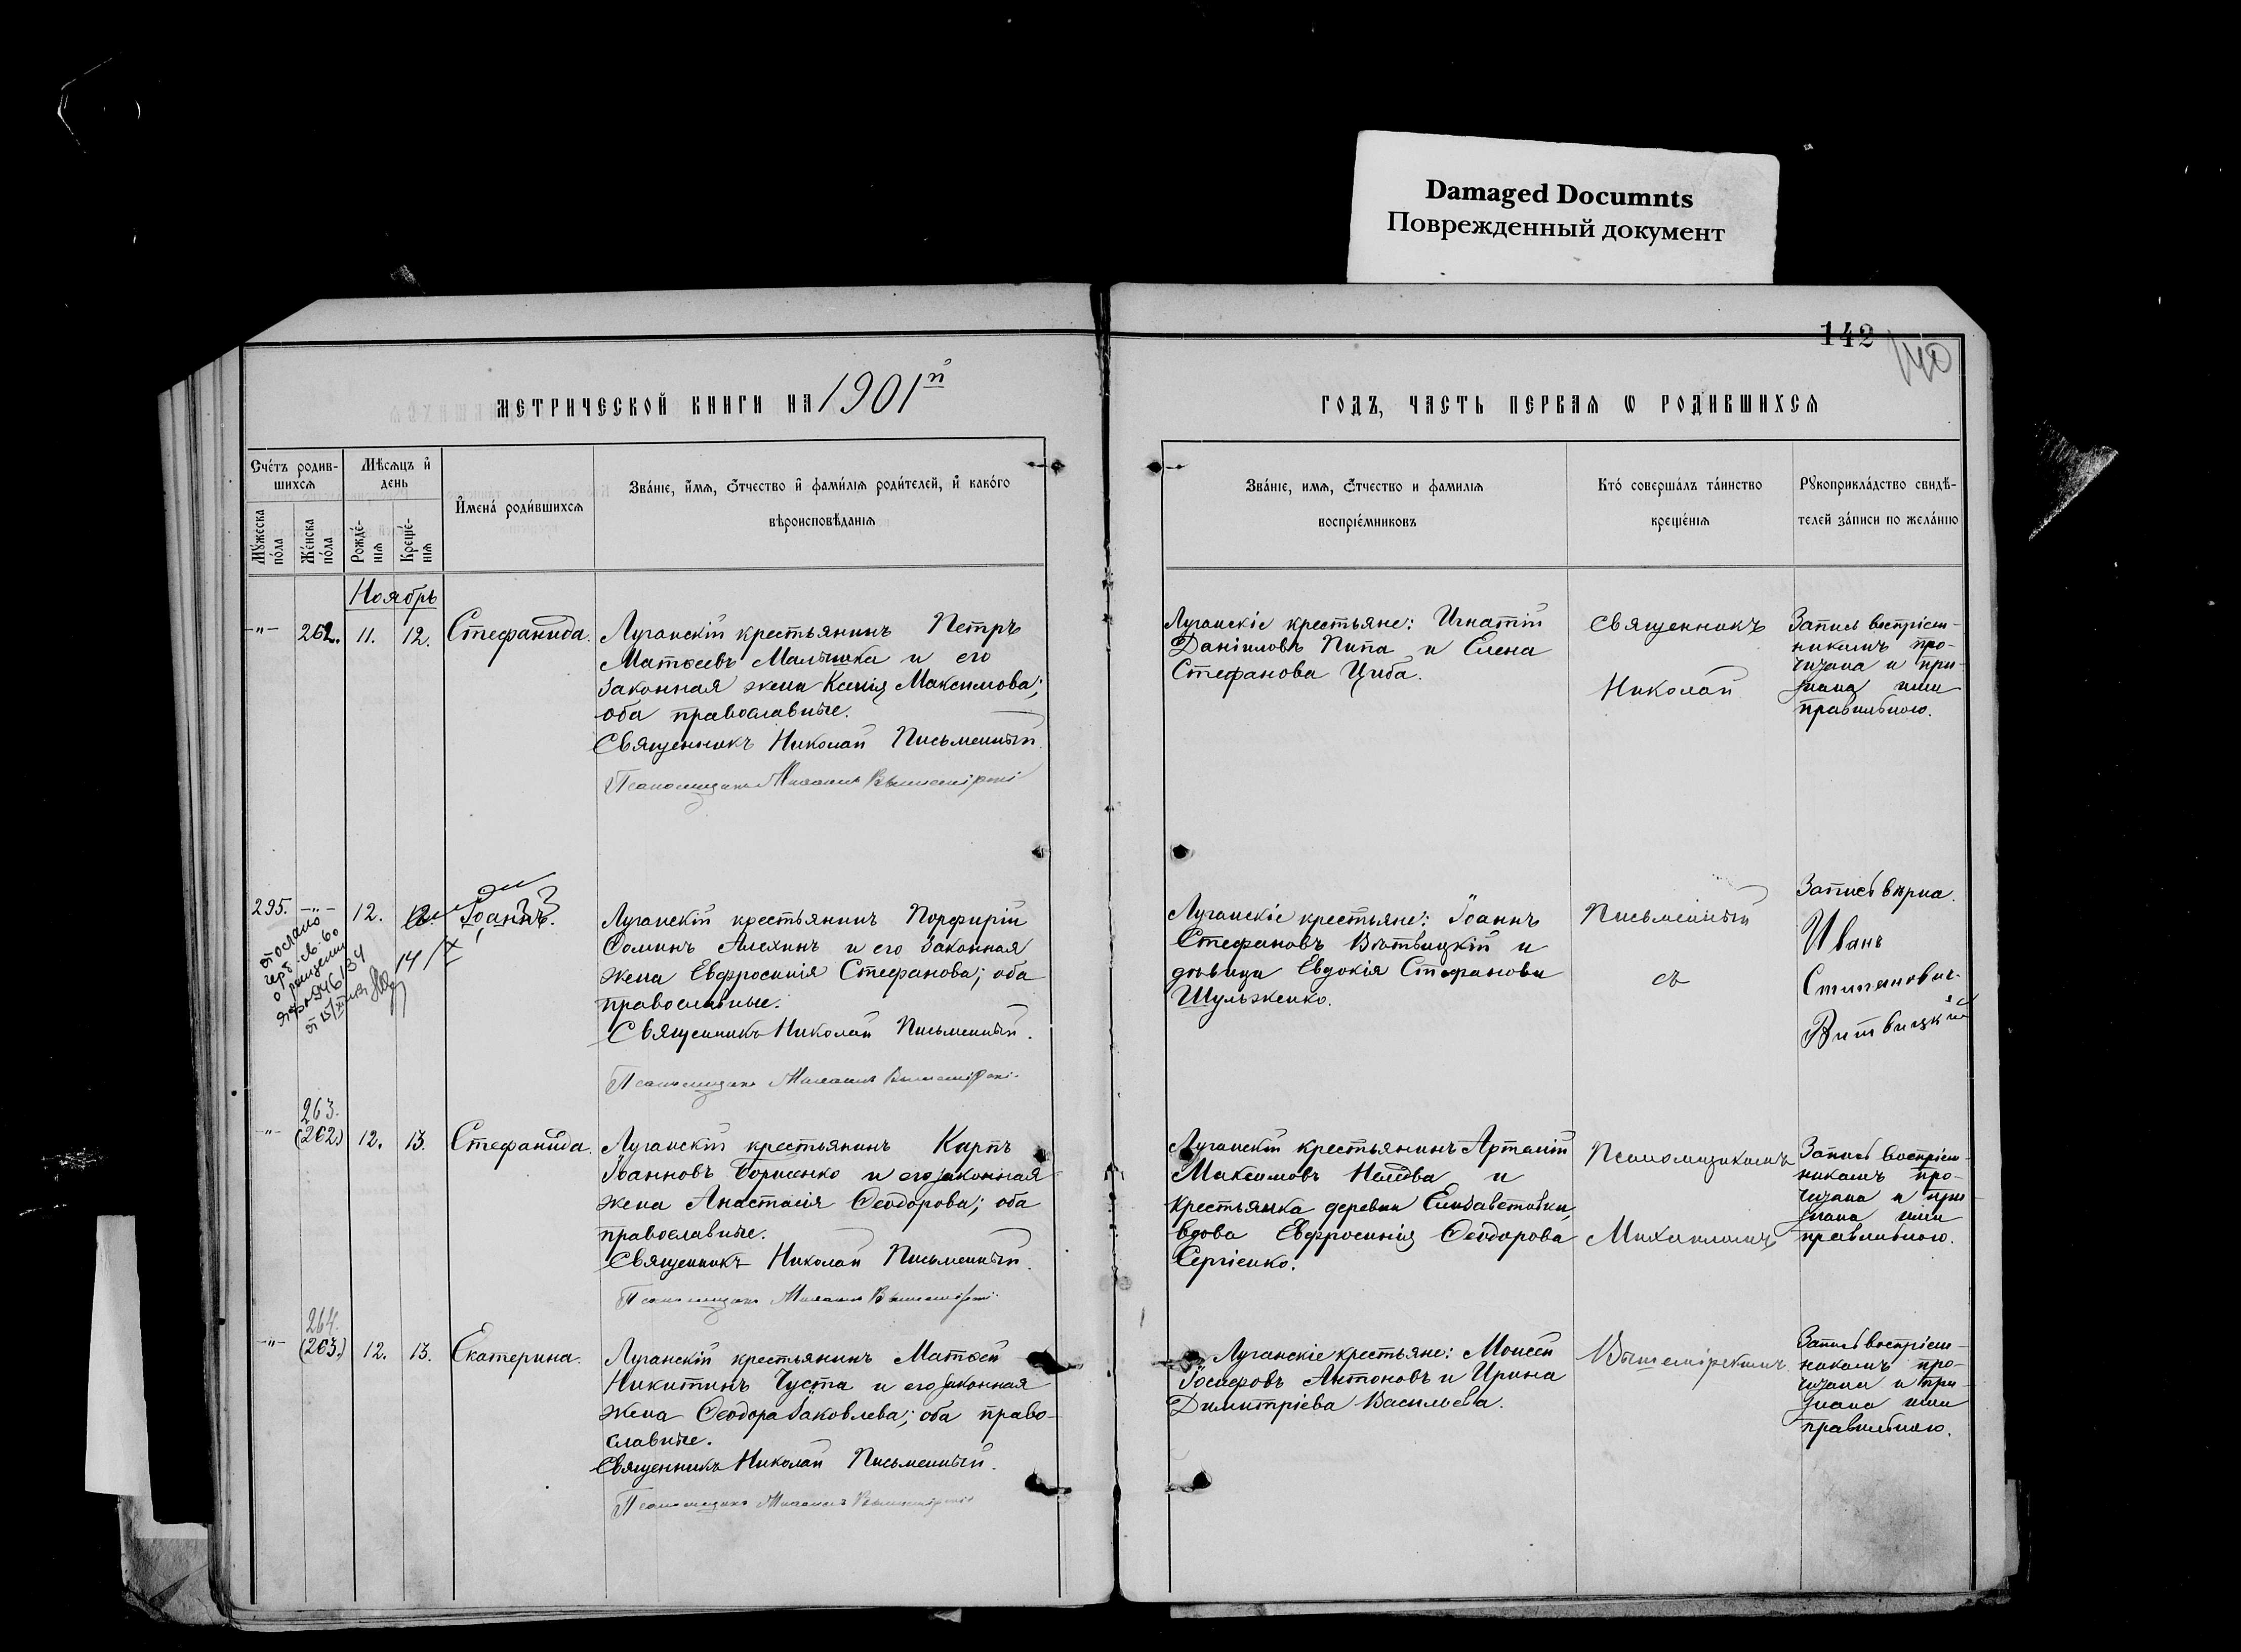 Damaged Documnts
Поврежденный документ
142
140
МЕТРИЧЕСКОЙ КНИГИ НА 1901й
ГОДЪ, ЧАСТЬ ПЕРВАЯ Ѡ РОДИВШИХСЯ
Счетъ родив-
шихся
Мужеска
пола
Женска
пола
Мѣсяцъ и
день
Рожде-
нія
Креще-
нія
Имена родившихся
Званіе, имя, отчество и фамилія родителей, и какого
вѣроисповѣданія
Званіе, имя, отчество и фамилія
воспріемниковъ
Кто совершалъ таинство
крещенія
Рукоприкладство свидѣ-
телей записи по желанію
Ноябрь
-"- 262. 11. 12. Стефанида.
Луганскій крестьянинъ Петръ
Матѳеевъ Малышка и его
законная жена Ксенія Максимова;
оба православные.
Священникъ Николай Письменный.
Псаломщикъ Михаилъ Вышемірскій
Луганскіе крестьяне: Игнатій
Даніиловъ Пипа и Елена
Стефанова Циба.
Священникъ
Николай
Запись воспріем-
никамъ про-
читана и при-
знана ими
правильною.
295. -"- 12. Іоаннъ.
отослано
14/IX
Луганскій крестьянинъ Порфирій
Соминъ Алехинъ и его законная
жена Евфросинія Стефанова; оба
православные.
Священникъ Николай Письменный.
Псаломщикъ Михаилъ Вышемірскій.
Луганскіе крестьяне: Іоаннъ
Стефановъ Витвицкій и
дѣвица Евдокія Стефанова
Шульженко.
Письменный
съ
Запись вѣрна.
Иванъ
Степановичъ
Витвицкій
263.
-"- (262.) 12. 13. Стефанида.
Луганскій крестьянинъ Карпъ
Іоанновъ Борисенко и его законная
жена Анастасія Ѳеодорова; оба
православные.
Священникъ Николай Письменный.
Псаломщикъ Михаилъ Вышемірскій
Луганскій крестьянинъ Артемій
Максимовъ и
крестьянка деревни Елизаветовки,
вдова Евфросинія Ѳеодорова
Сергіенко.
Псаломщикомъ
Михаиломъ
Запись воспріем-
никамъ про-
читана и при-
знана ими
правильною.
264.
-"- (263.) 12. 13. Екатерина.
Луганскій крестьянинъ Матѳей
Никитинъ Чуста и его законная
жена Ѳеодора Іаковлева; оба право-
славные.
Священникъ Николай Письменный.
Псаломщикъ Михаилъ Вышемірскій
Луганскіе крестьяне: Моисей
Іосифовъ Антоновъ и Ирина
Димитріева Васильева.
Вышемірскимъ
Запись воспріем-
никамъ про-
читана и при-
знана ими
правильною.